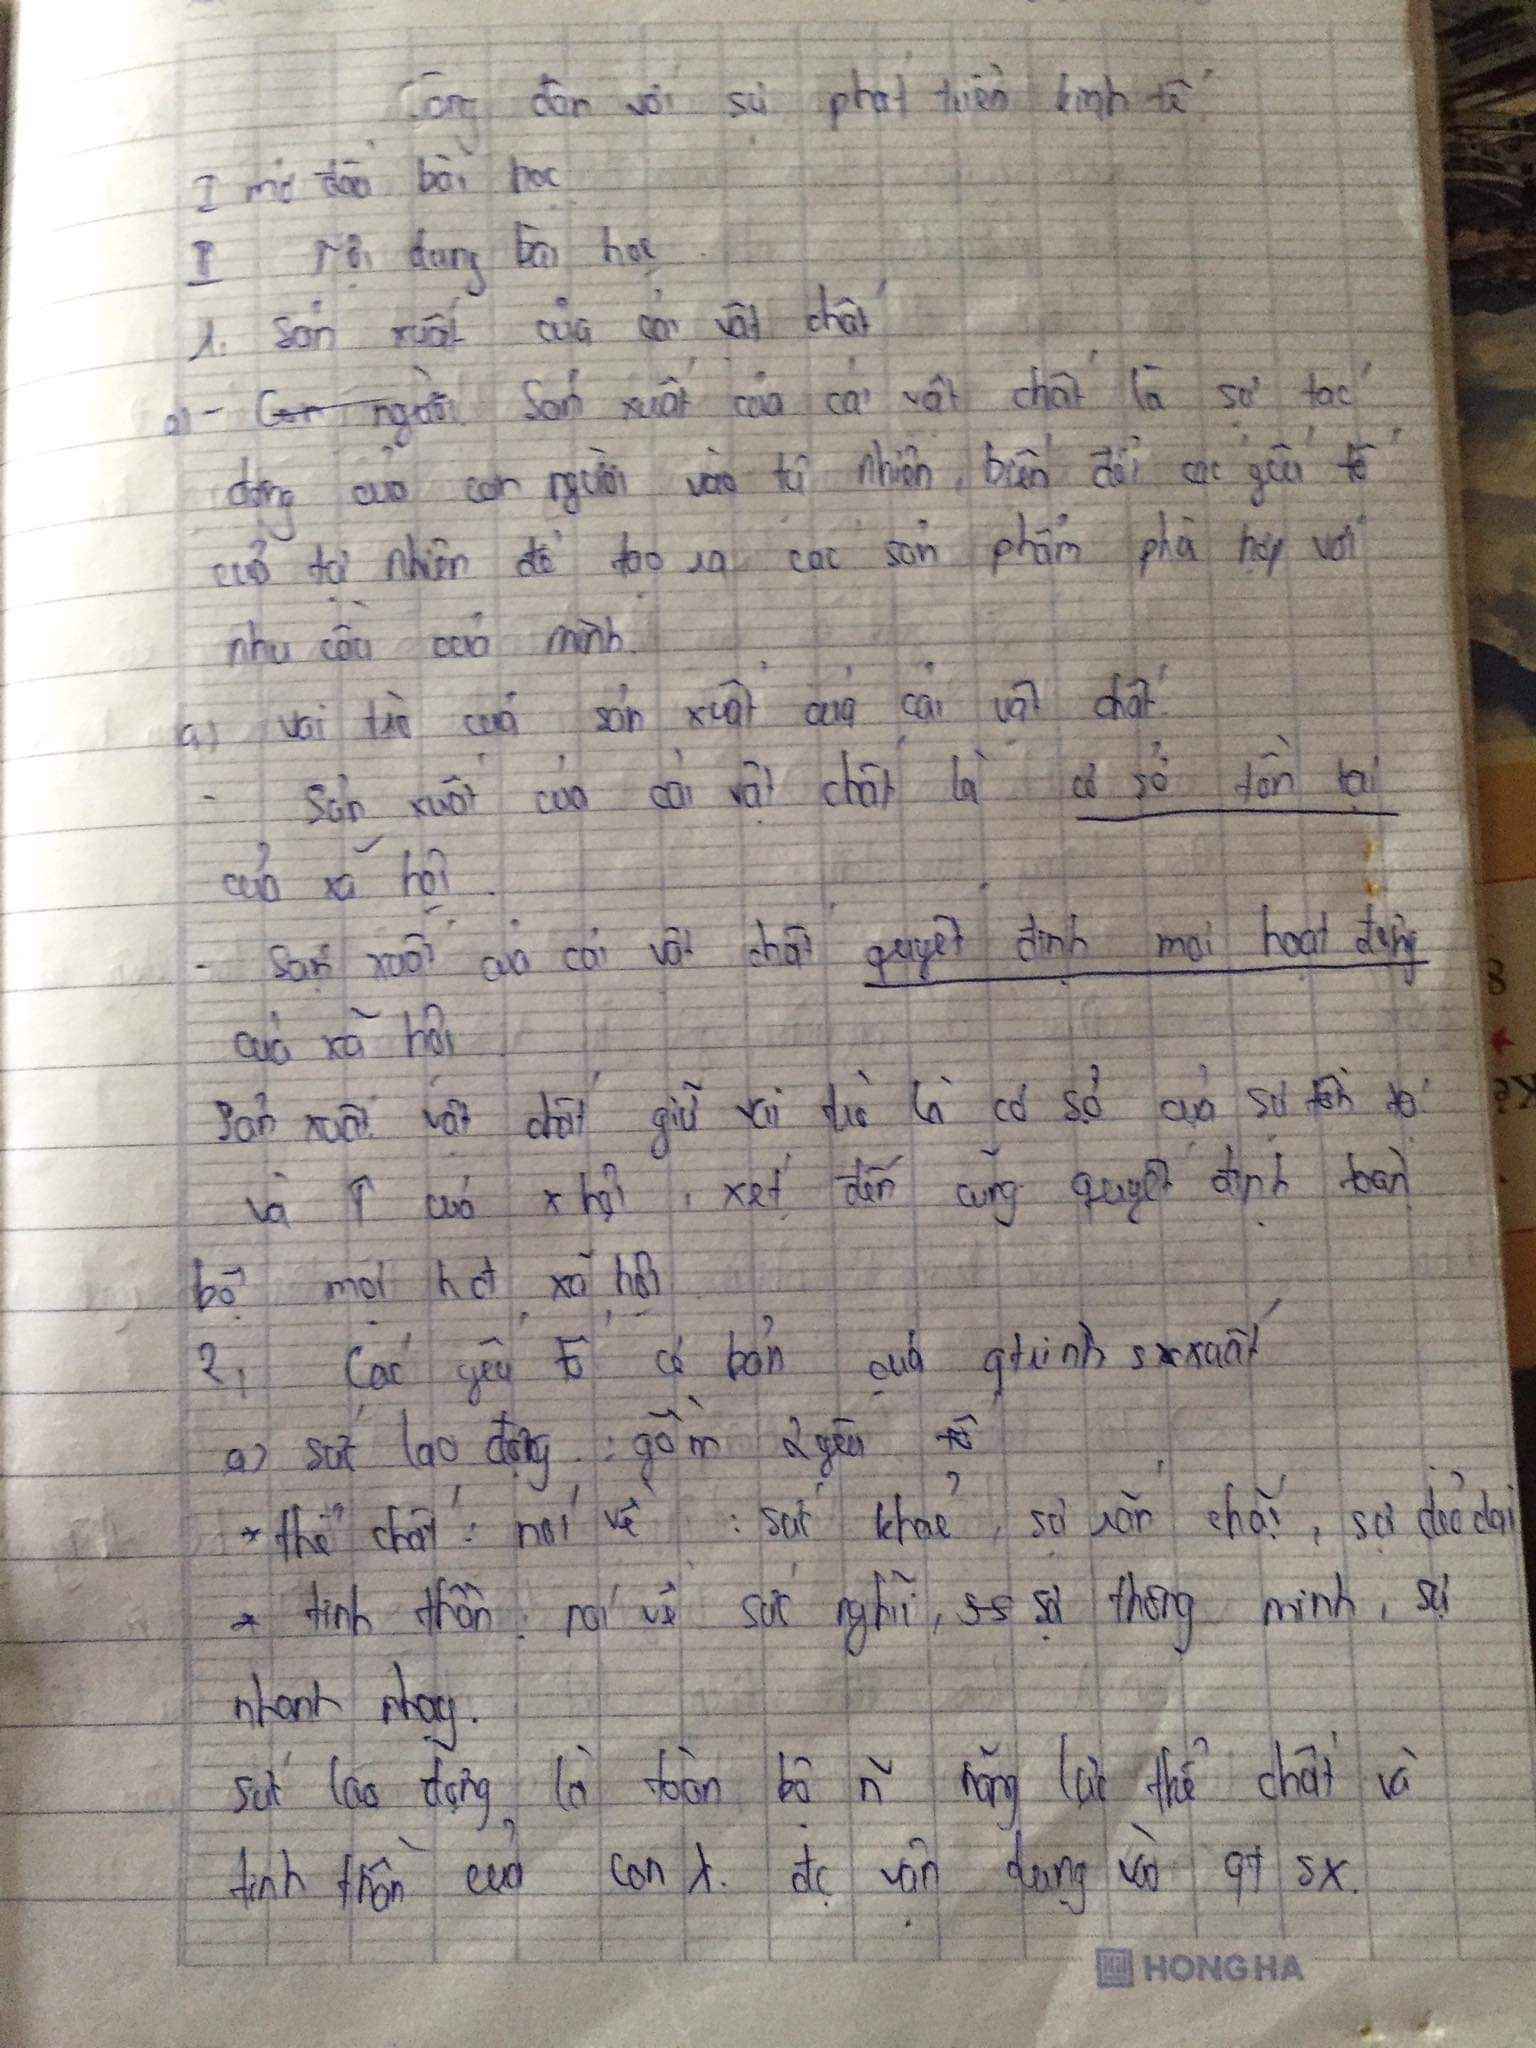 Công dân với sự phát triển kinh tế
I mở đầu bài học
II Nội dung bài học
1. Sản xuất của cải vật chất
a) - Con người Sản xuất của cải vật chất là sự tác
động của con người vào tự nhiên, biến đổi các yếu tố
của tự nhiên để tạo ra các sản phẩm phù hợp với
nhu cầu của mình.
a) vai trò của sản xuất của cải vật chất
- Sản xuất của cải vật chất là cơ sở tồn tại
của xã hội.
- Sản xuất của cải vật chất quyết định mọi hoạt động
của xã hội
Sản xuất vật chất giữ vai trò là cơ sở của sự tồn tại
và ↑ của x hội, xét đến cùng quyết định toàn
bộ mọi hđ xã hội
2, Các yếu tố cơ bản của qtrình sxxuất
a) sức lao động : gồm 2 yếu tố
* thể chất : nói về : sức khoẻ, sự rắn chắc, sự dẻo dai
* tinh thần : nói về sức nghĩ, ss sự thông minh, sự
nhanh nhạy.
sức lao động là toàn bộ n năng lực thể chất và
tinh thần của con đc vận dụng vào qt sx.
HONG HA